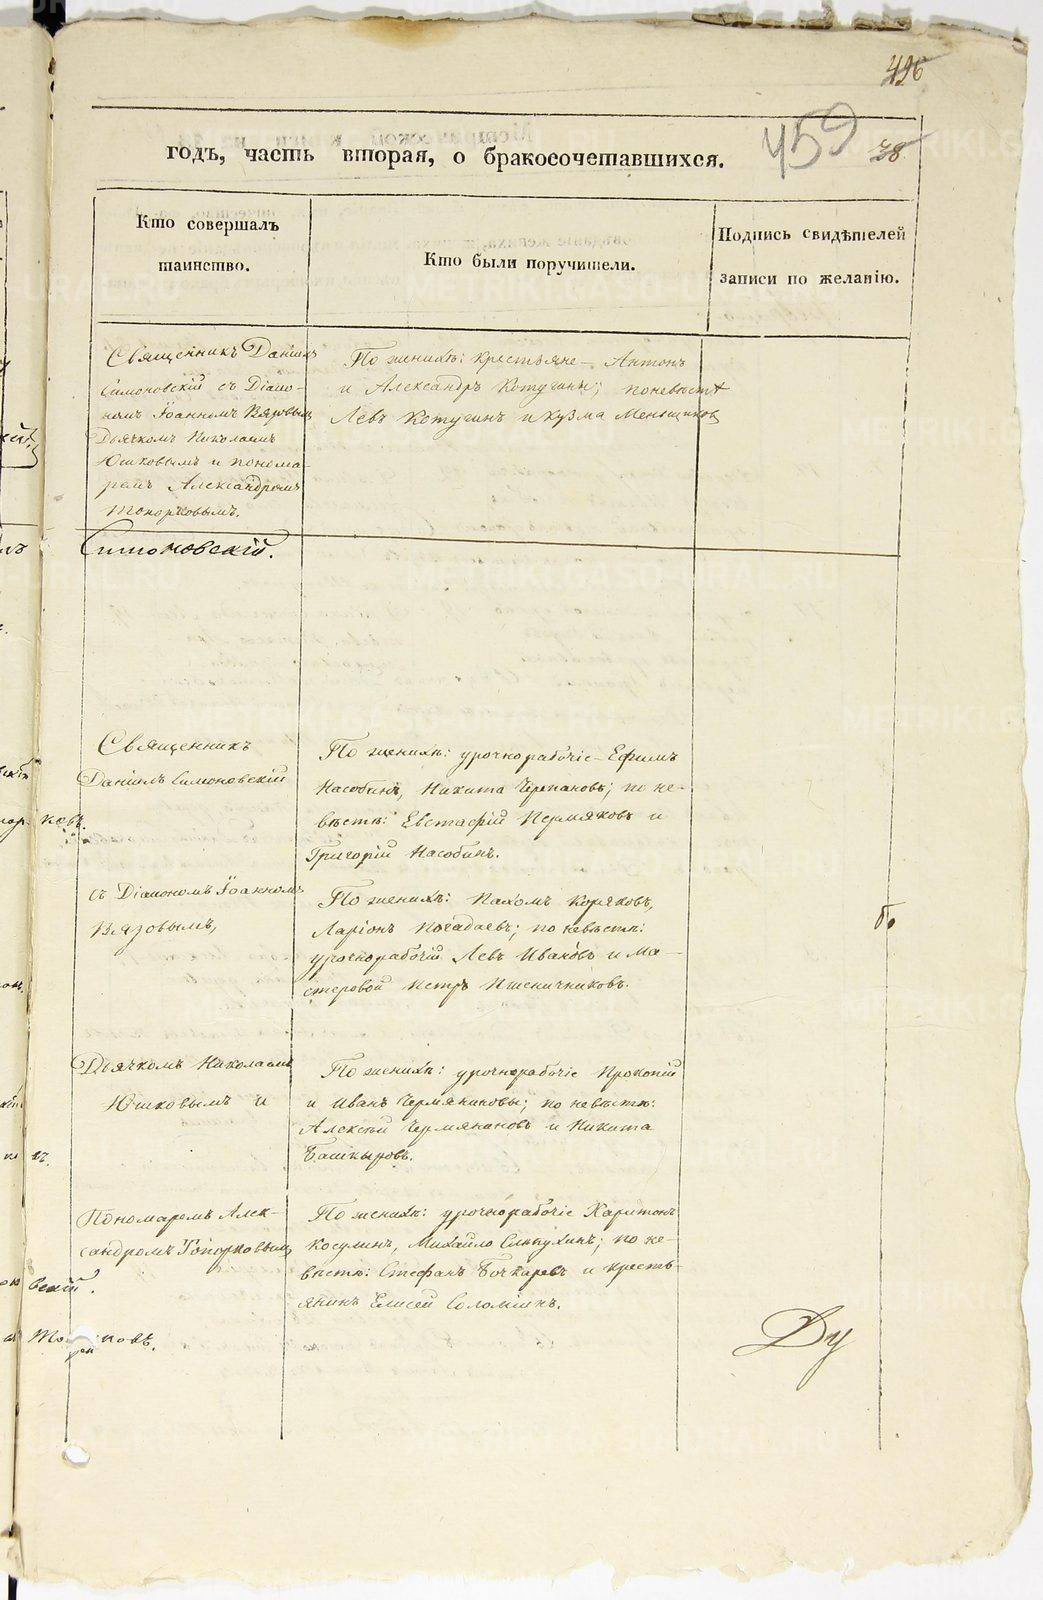 426
459
38
годъ, часть вторая, о бракосочетавшихся.
Кто совершалъ
таинство.
Кто были поручители.
Подпись свидѣтелей
записи по желанію.
Священникъ Даніилъ
Симоновскій съ Діако-
номъ Іоанномъ Вязовымъ
Дьячкомъ Николаемъ
Юшковымъ и понома-
ремъ Александромъ
Топорковымъ.
По женихѣ: крестьяне Антонъ
и Александръ Котугины; по невѣстѣ
Левъ Котугинъ и Кузма Меньщиковъ
Симоновскій.
Священникъ
Даніилъ Симоновскій
По женихѣ: урочнорабочіе Ефимъ
Насобинъ, Никита Черепановъ; по не-
вѣстѣ: Евстафій Пермяковъ и
Григорій Насобинъ.
съ Діакономъ Іоанномъ
Вязовымъ,
По женихѣ: Пахомъ Коряковъ,
Ларіонъ Погадаевъ; по невѣстѣ:
урочнорабочій Левъ Ивановъ и Ма-
стеровой Петръ Пшеничниковъ.
Дьячкомъ Николаемъ
Юшковымъ и
По женихѣ: урочнорабочіе Прокопій
и Иванъ Чермяниновы; по невѣстѣ:
Алексѣй Чермяниновъ и Никита
Башкыровъ.
Пономаремъ Алек-
сандромъ Топорковымъ
По женихѣ: урочнорабочіе Харитонъ
Косулинъ, Михайло Слѣпухинъ; по не-
вѣстѣ: Стефанъ Бочкаревъ и кресть-
янинъ Елисей Соломеинъ.
Ду
METRIKI.GASO-URAL.RU